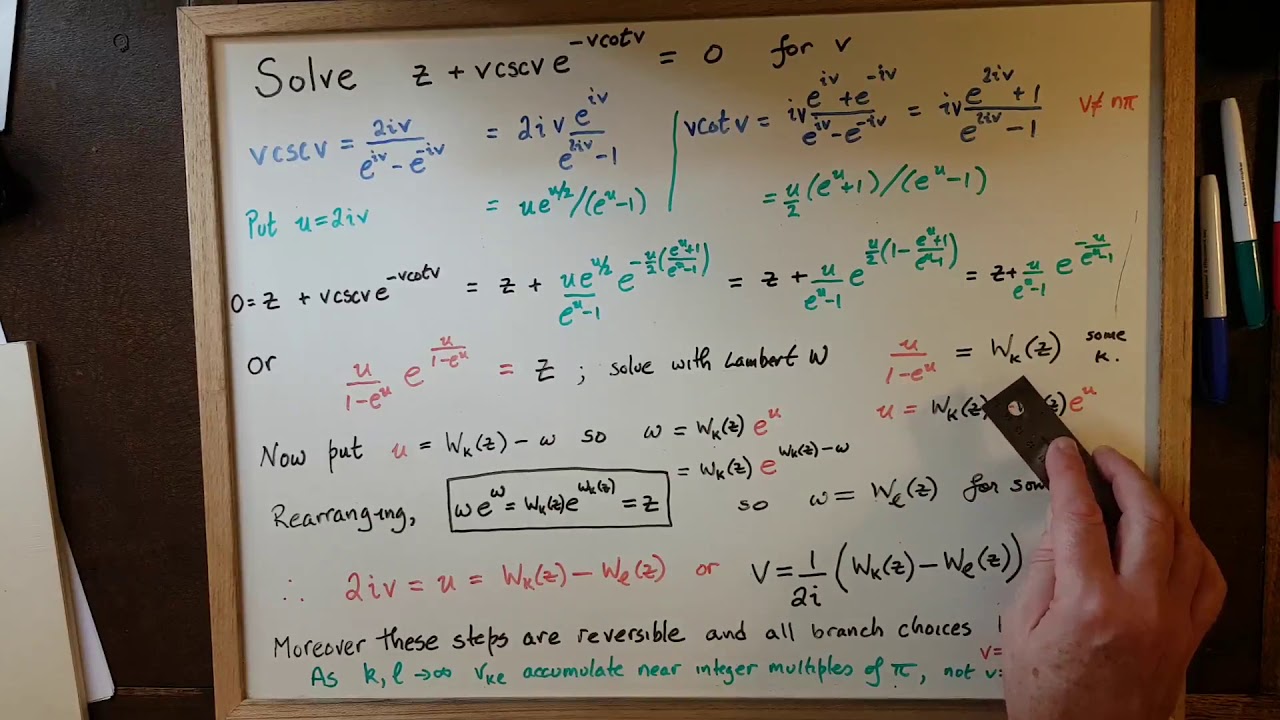 Solve z + vcscv e^{-vcotv} = 0 for v
vcscv = 2iv/(e^{iv} - e^{-iv}) = 2iv e^{iv}/(e^{2iv} - 1) | vcotv = iv (e^{iv} + e^{-iv})/(e^{iv} - e^{-iv}) = iv (e^{2iv} + 1)/(e^{2iv} - 1) v ≠ nπ
Put u = 2iv = ue^{u/2}/(e^u - 1) = u/2 (e^u + 1)/(e^u - 1)
0 = z + vcscv e^{-vcotv} = z + ue^{u/2}/(e^u - 1) e^{-u/2((e^u+1)/(e^u-1))} = z + u/(e^u - 1) e^{u/2(1 - (e^u+1)/(e^u-1))} = z + u/(e^u - 1) e^{-u/(e^u-1)}
or u/(1 - e^u) e^{u/(1-e^u)} = z ; solve with Lambert W u/(1 - e^u) = W_k(z) some k.
u = W_k(z) e^u
Now put u = W_k(z) - ω so ω = W_k(z) e^u
= W_k(z) e^{W_k(z) - ω}
Rearranging, ωe^ω = W_k(z)e^{W_k(z)} = z so ω = W_ℓ(z) for
∴ 2iv = u = W_k(z) - W_ℓ(z) or V = 1/2i (W_k(z) - W_ℓ(z))
Moreover these steps are reversible and all branch choices
v=
As k, ℓ → ∞ v_{kℓ} accumulate near integer multiples of π, not v=